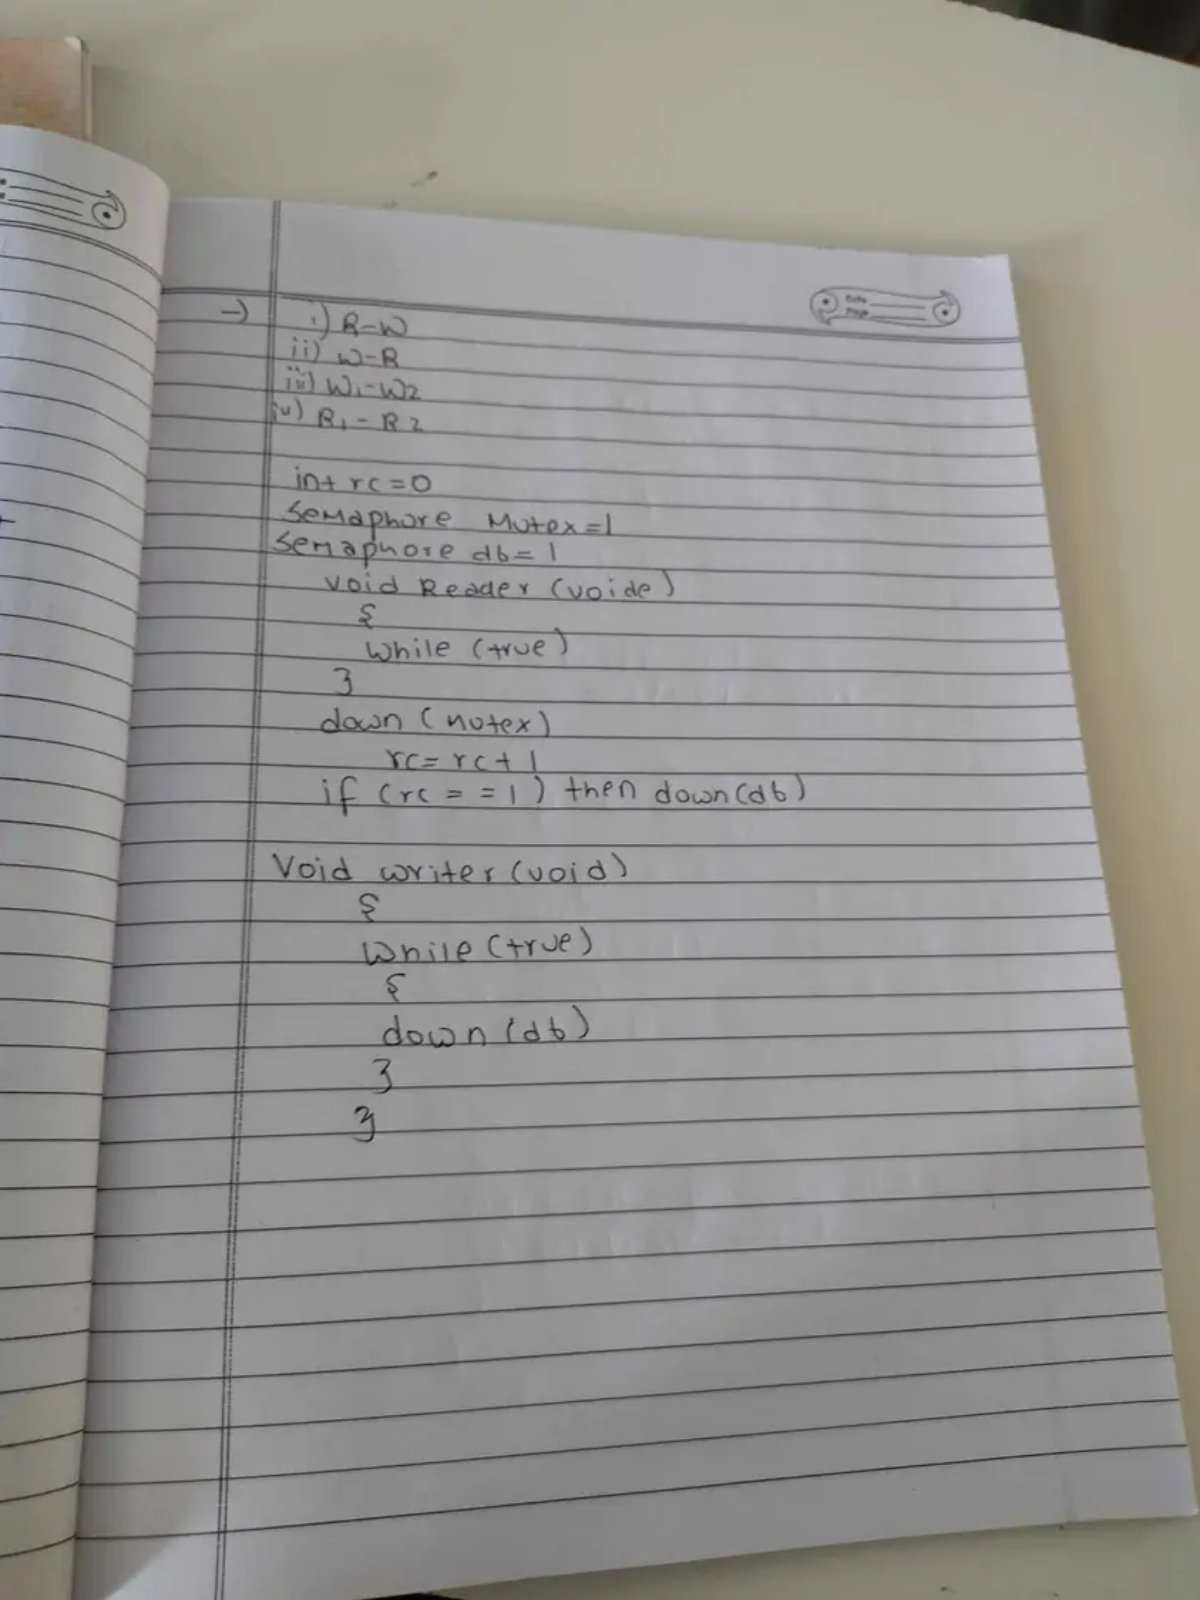 → i) R-W
ii) W-R
iii) W1-W2
iv) R1-R2
int rc=0
Semaphore Mutex=1
Semaphore db=1
void Reader (voide)
{
while (true)
}
down (mutex)
rc=rc+1
if (rc==1) then down(db)
Void writer(void)
{
while(true)
{
down(db)
}
}